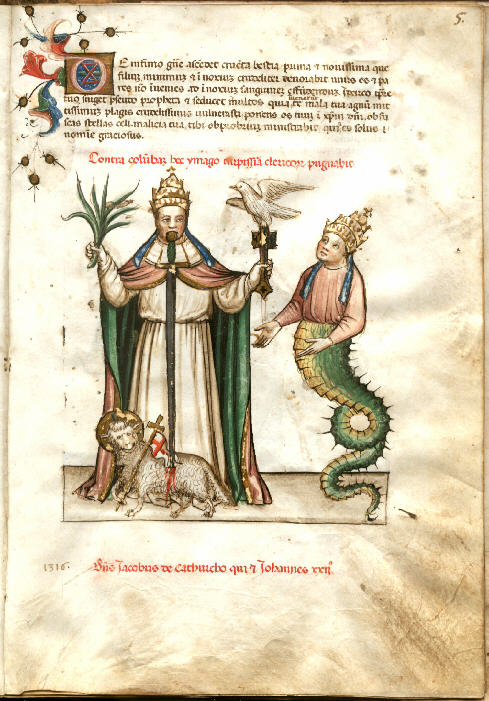 5.
E infimo gñe ascẽdet cruẽta bestia prima et novissima que
filium minimum et inoxium crudeliter denorabit unus es et pa
res nõ invenies ad inoxium sanguinem effundendum
tuo surget pseudo propheta et seducet multos quia de mala tua agnũ mi
tissimũ plagis crudelissimis vulnerasti ponens os tuũ ĩ xp̃m dñi, obfu
scas stellas celi malicia tua tibi obprobrium ministrabit solus ĩ
nomĩe graciosus.
Contra columbam hec ymago turpissima clericorum pugnabit
1316. Dñs Jacobus de Cathurcho qui et Johannes xxijº